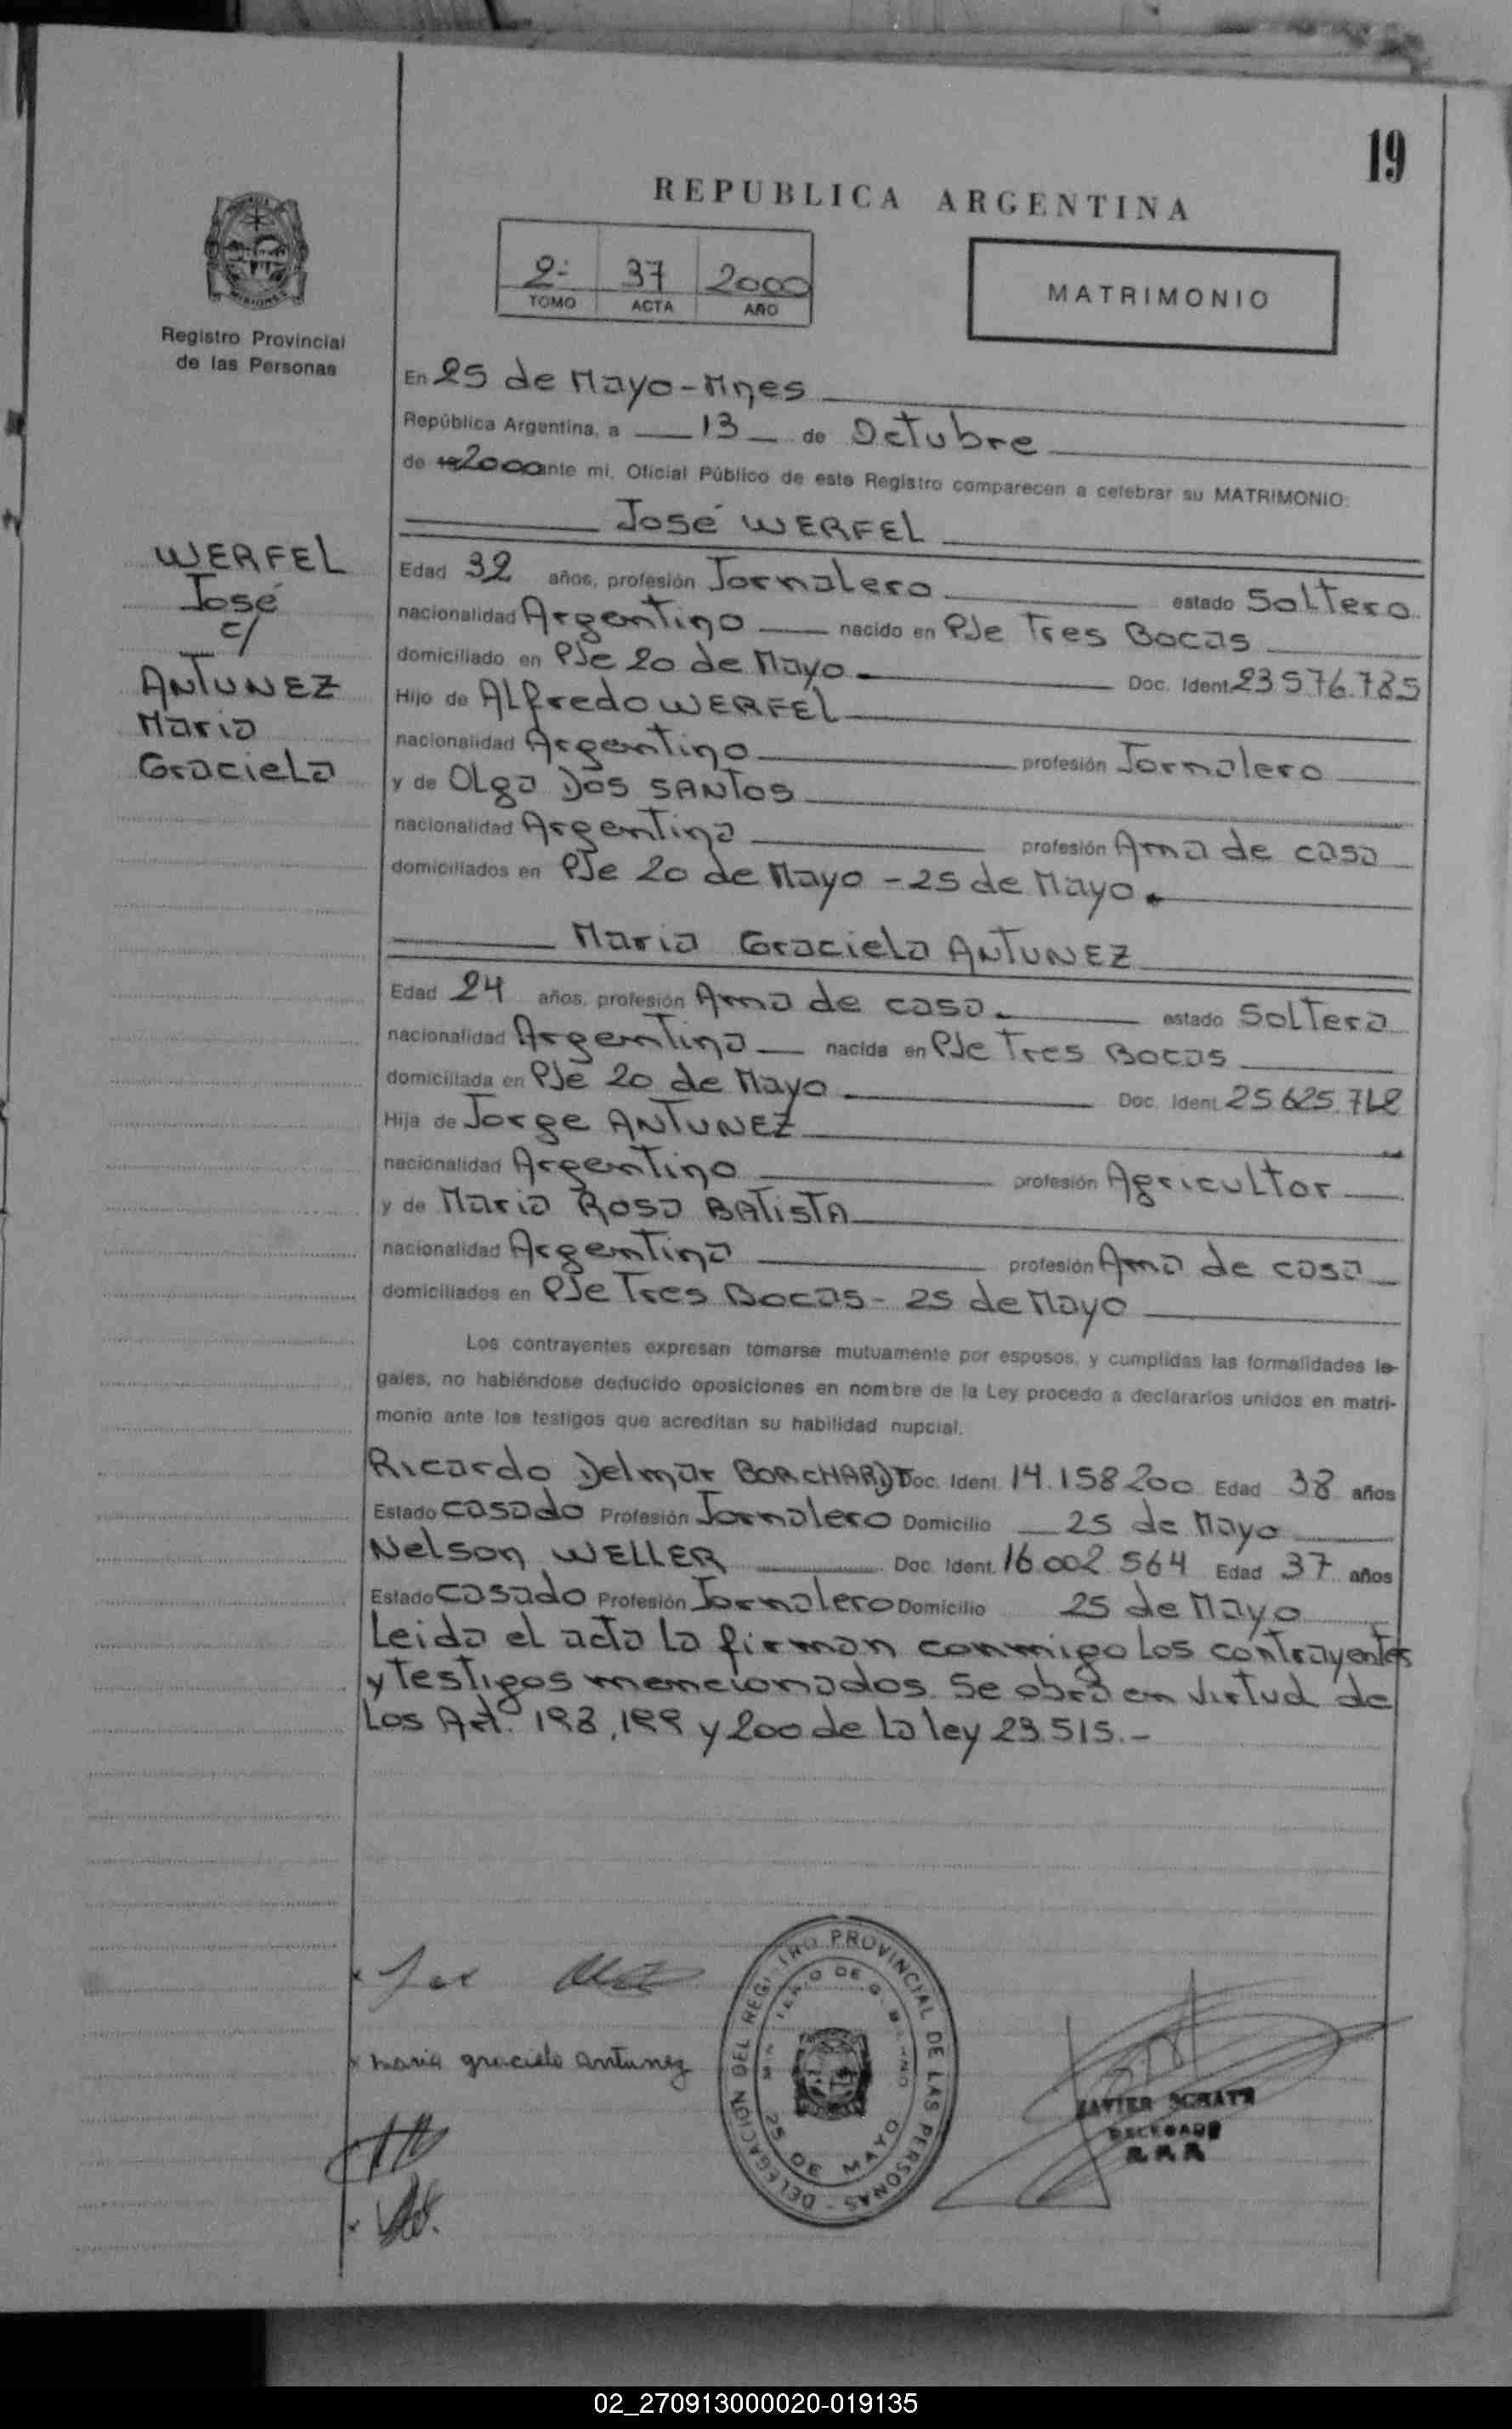 19
REPUBLICA ARGENTINA
2º 37 2000
TOMO ACTA AÑO
MATRIMONIO
Registro Provincial
de las Personas
En 25 de Mayo-Mnes
República Argentina, a 13 de Octubre
de 19 2000 ante mi, Oficial Público de este Registro comparecen a celebrar su MATRIMONIO:
José WERFEL
WERFEL
José
c/
ANTUNEZ
Maria
Graciela
Edad 32 años, profesión Jornalero estado Soltero
nacionalidad Argentino nacido en PJe Tres Bocas
domiciliado en PJe 20 de Mayo Doc. Ident. 23.576.785
Hijo de Alfredo WERFEL
nacionalidad Argentino profesión Jornalero
y de Olga Dos SANTOS
nacionalidad Argentina profesión Ama de casa
domiciliados en PJe 20 de Mayo - 25 de Mayo.
Maria Graciela ANTUNEZ
Edad 24 años, profesión Ama de casa. estado Soltera
nacionalidad Argentina nacida en PJe Tres Bocas
domiciliada en PJe 20 de Mayo Doc. Ident. 25.625.
Hija de Jorge ANTUNEZ
nacionalidad Argentino profesión Agricultor
y de Maria Rosa BATISTA
nacionalidad Argentina profesión Ama de casa
domiciliados en PJe Tres Bocas - 25 de Mayo
Los contrayentes expresan tomarse mutuamente por esposos, y cumplidas las formalidades le-
gales, no habiéndose deducido oposiciones en nombre de la Ley procedo a declararlos unidos en matri-
monio ante los testigos que acreditan su habilidad nupcial.
Ricardo Delmar BORCHARDT Doc. Ident. 14.158.200 Edad 38 años
Estado casado Profesión Jornalero Domicilio 25 de Mayo
Nelson WELLER Doc. Ident. 16.002.564 Edad 37 años
Estado casado Profesión Jornalero Domicilio 25 de Mayo
Leida el acta la firman conmigo los contrayentes
y testigos mencionados. Se obra en virtud de
los Art. 198, 199 y 200 de la ley 23.515.-
maria graciela antunez
DELEGACION DEL REGISTRO PROVINCIAL DE LAS PERSONAS
MINISTERIO DE GOBIERNO
25 DE MAYO
DELEGADO
02_270913000020-019135